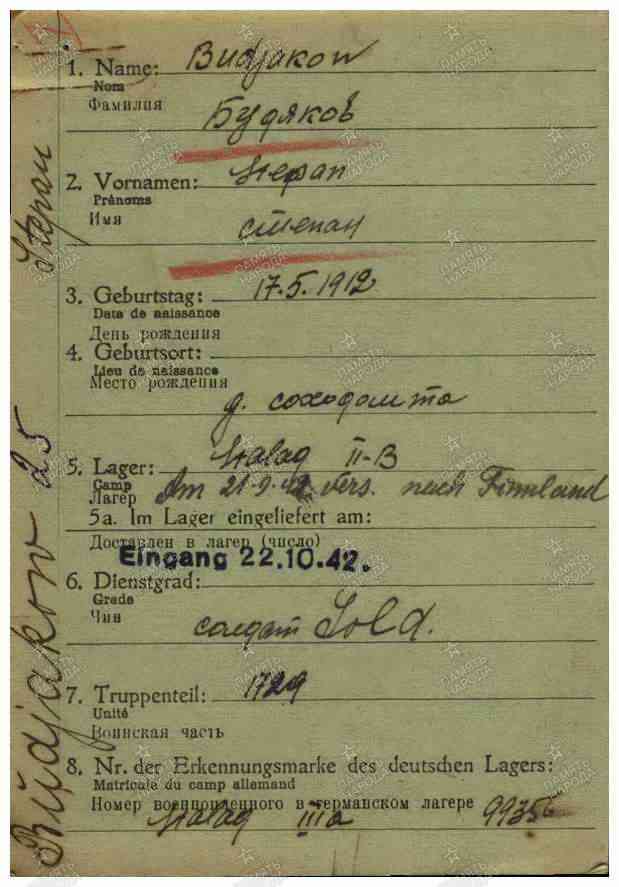 1. Name: Budjakow
Nom
Фамилия
Будяков
2. Vornamen: Stepan
Prénoms
Имя
степан
3. Geburtstag: 17.5.1912
Date de naissance
День рождения
4. Geburtsort:
Lieu de naissance
Место рождения
д.
5. Lager: Stalag II-B
Camp
Лагер Am 21.9.42 Vers. nach Finnland
5a. Im Lager eingeliefert am:
Доставлен в лагер (число)
Eingang 22.10.42.
6. Dienstgrad:
Grade
Чин
солдат Sold.
7. Truppenteil: 1729
Unité
Воинская часть
8. Nr. der Erkennungsmarke des deutschen Lagers:
Matricule du camp allemand
Номер военнопленного в германском лагере
Stalag IIIa 99356
Budjakow 25 Stepan
ПАМЯТЬ НАРОДА